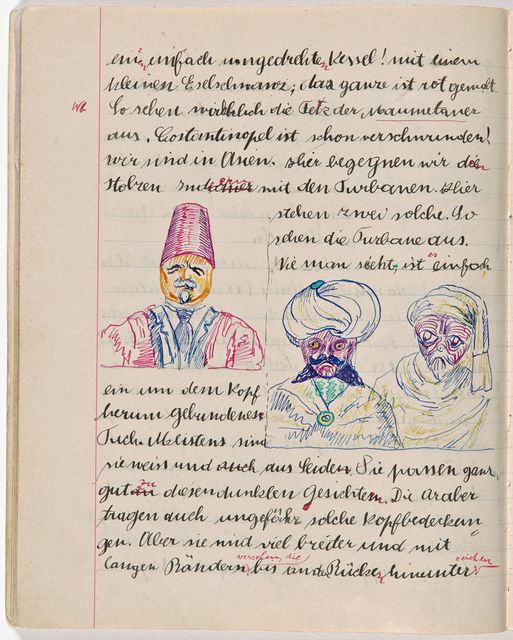 einen einfach umgedrehten Kessel! mit einem
kleinen Eselschwanz; das ganze ist rot gemalt.
Wb
So sehen wirklich die Fetz der Maumetaner
aus. Costantinopel ist schon verschwunden!
wir sind in Asien. Hier begegnen wir den
stolzen Indern mit den Turbanen. Hier
stehen zwei solche. So
sehen die Turbane aus.
Wie man sieht ist es einfach
ein um dem Kopf
herum gebundenes
Tuch. Meistens sind
sie weiss und auch aus Seiden. Sie passen ganz
gut zu diesen dunklen Gesichtern. Die Araber
tragen auch ungefähr solche Kopfbedeckun"
gen. Aber sie sind viel breiter und mit
versehen, die reichen
langen Rändern bis an den Rücken hinunter.